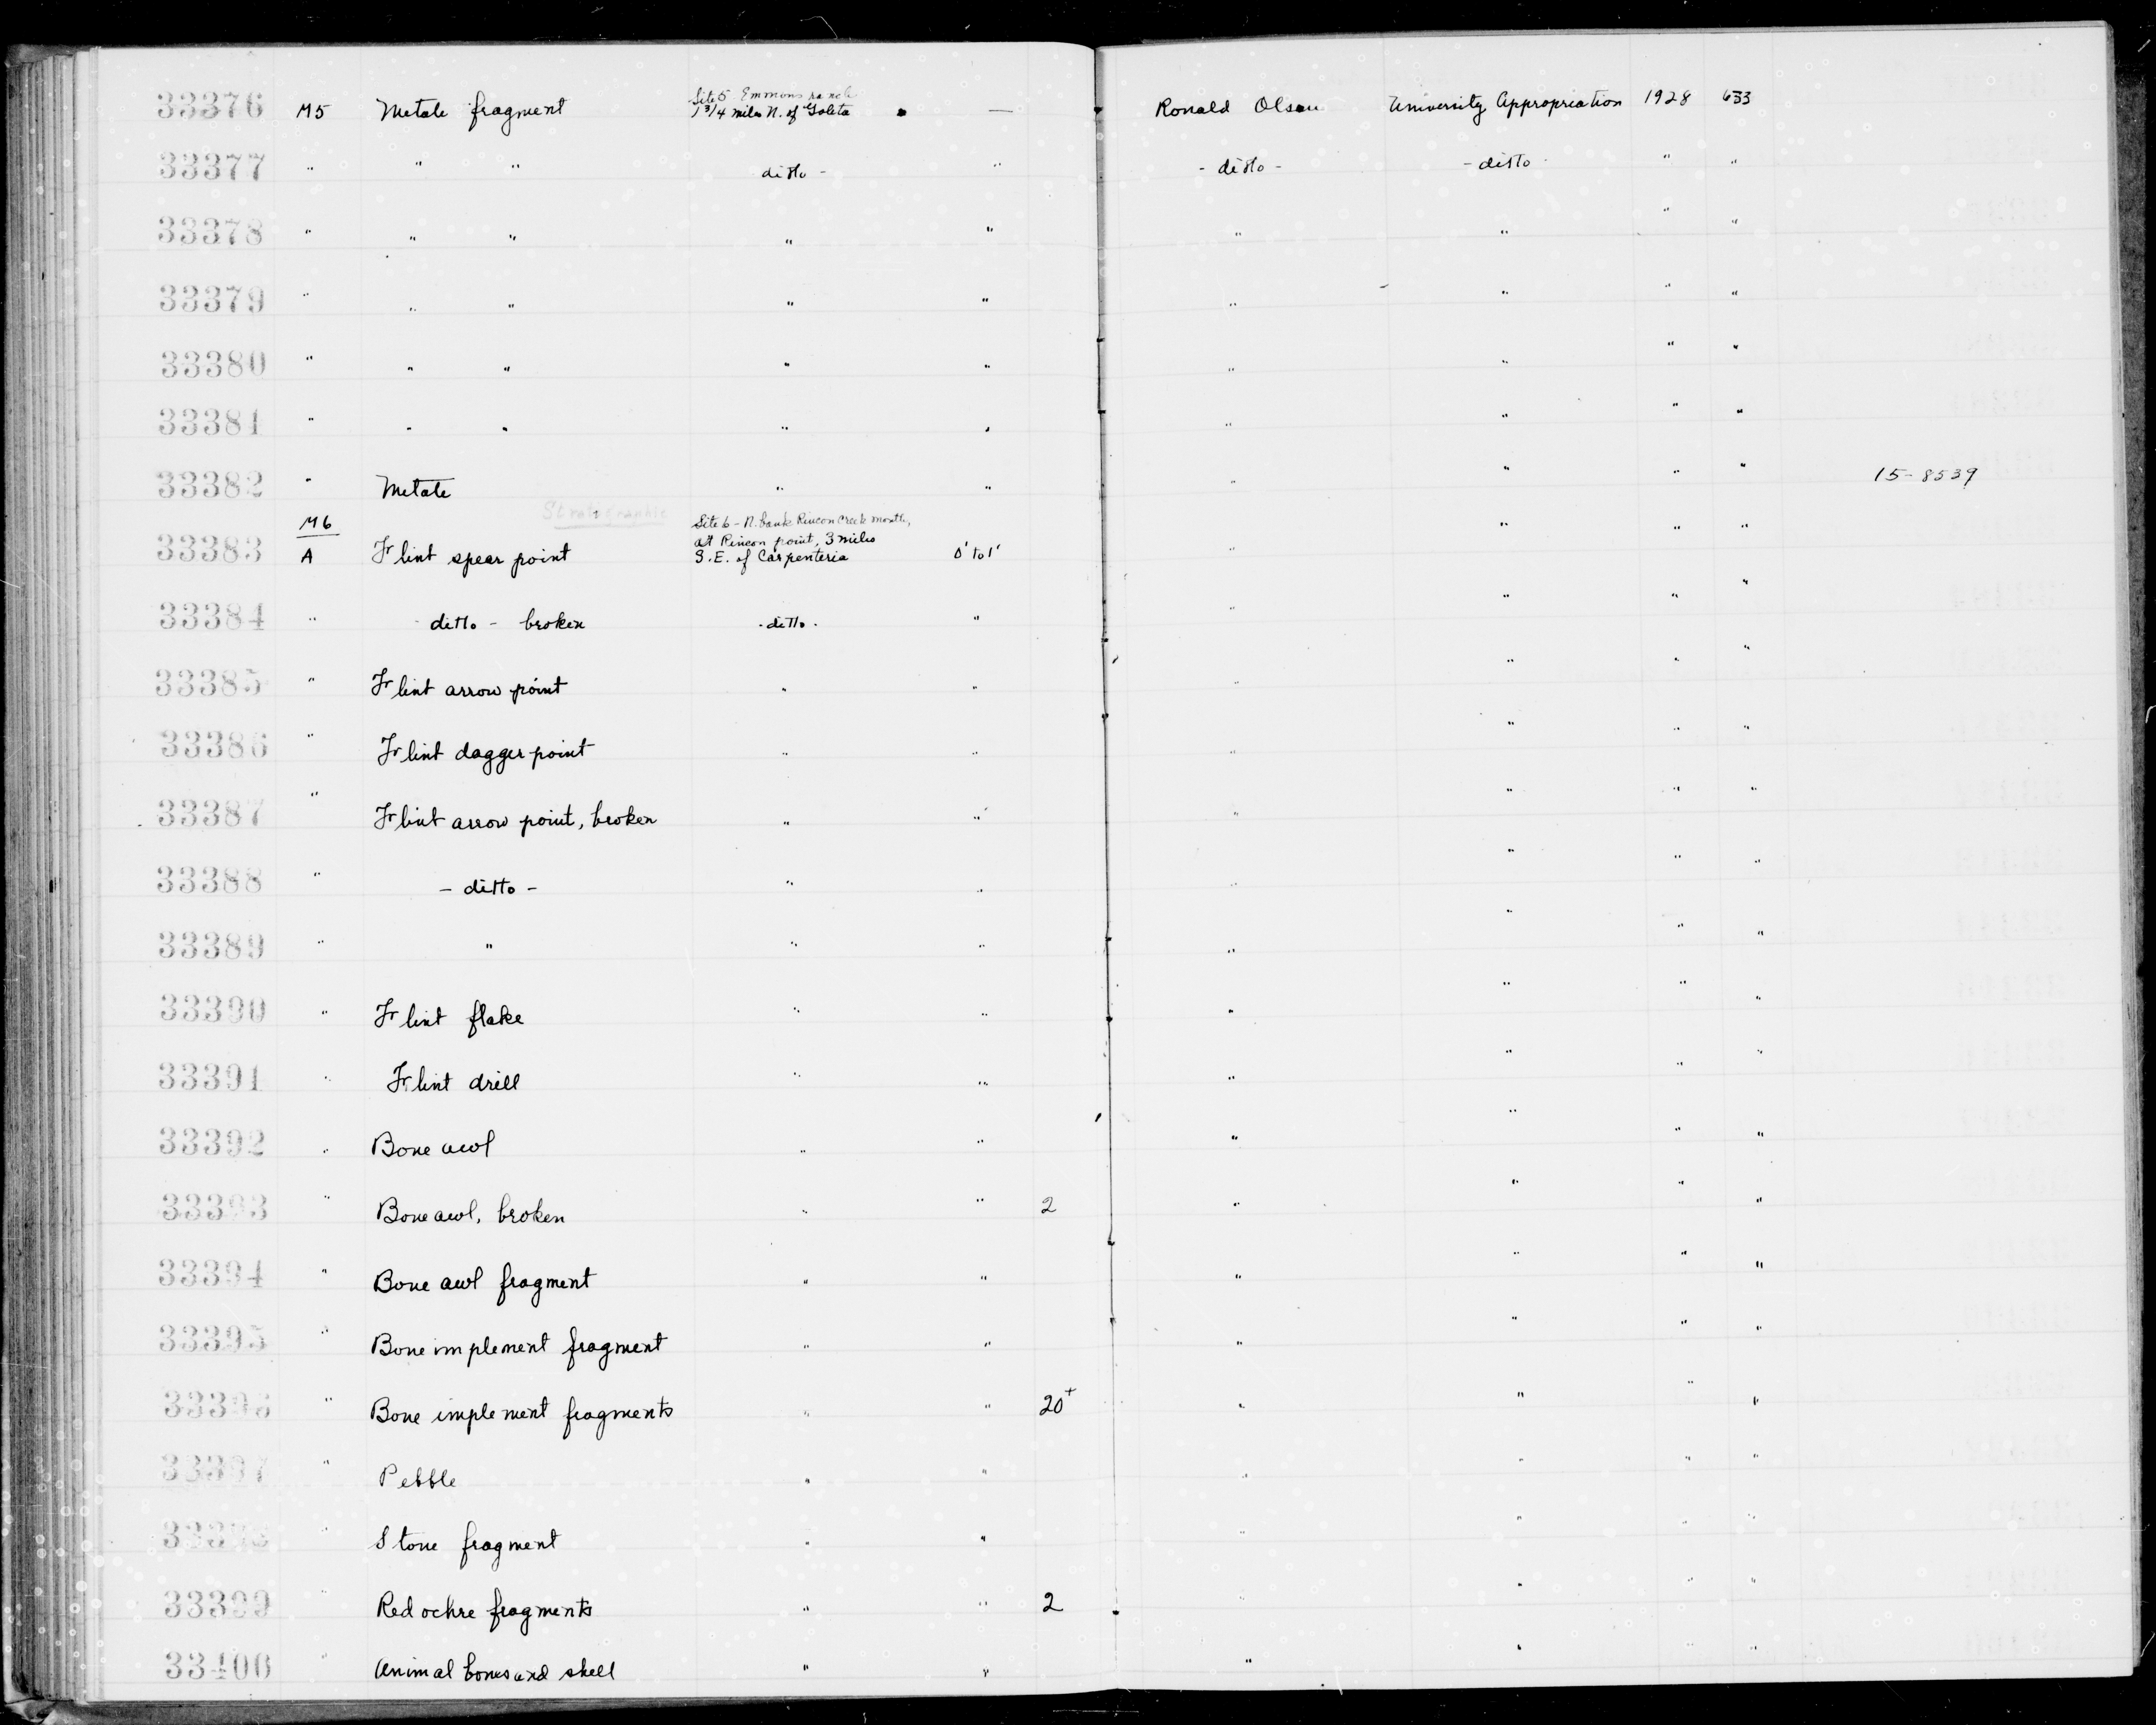 Site 5 Emmons ranch
33376 M5 Metate fragment 1 3/4 miles N. of Goleta — Ronald Olson University Appropriation 1928 633
33377 " " " ditto - " - ditto - - ditto - " "
33378 " " " " " " " " "
33379 " " " " " " " " "
33380 " " " " " " " " "
33381 " " " " " " " " "
33382 " Metate " " " " " " 15-8539
M6 Stratigraphic Site 6 - N. bank Rincon Creek mouth,
at Rincon point, 3 miles
33383 A Flint spear point S.E. of Carpenteria 0' to 1' " " " "
33384 " ditto - broken - ditto - " " " " "
33385 " Flint arrow point " " " " " "
33386 " Flint dagger point " " " " " "
33387 " Flint arrow point, broken " " " " " "
33388 " - ditto - " " " " " "
33389 " " " " " " " "
33390 " Flint flake " " " " " "
33391 " Flint drill " " " " " "
33392 " Bone awl " " " " " "
33393 " Bone awl, broken " " 2 " " " "
33394 " Bone awl fragment " " " " " "
33395 " Bone implement fragment " " " " " "
33396 " Bone implement fragments " " 20+ " " " "
33397 " Pebble " " " " " "
33398 " Stone fragment " " " " " "
33399 " Red ochre fragments " " 2 " " " "
33400 " Animal bones and shell " " " " " "